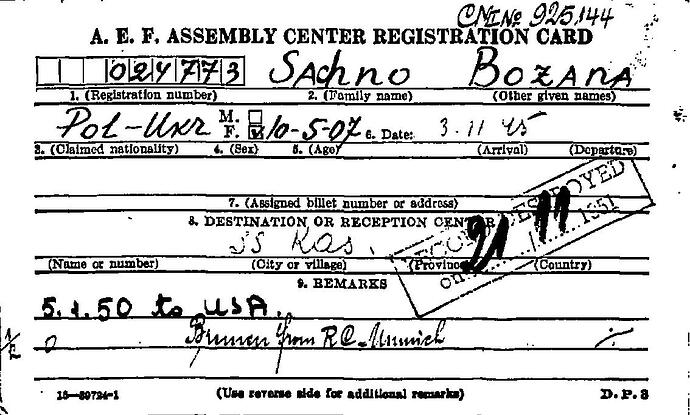 CM/1 No 925,144
A. E. F. ASSEMBLY CENTER REGISTRATION CARD
024773 SAchno BOZANA
1. (Registration number) 2. (Family name) (Other given names)
Pol-Ukr M. F. 10-5-07 6. Date: 3.11 45
3. (Claimed nationality) 4. (Sex) 5. (Age) (Arrival) (Departure)
7. (Assigned billet number or address)
8. DESTINATION OR RECEPTION CENTER
DESTROYED
SS KAS.
on 21/11 1951
(Name or number) (City or village) (Province) (Country)
9. REMARKS
5.1.50 to USA.
Bremen from RC-Munich
1/2
(Use reverse side for additional remarks) D. P. 3